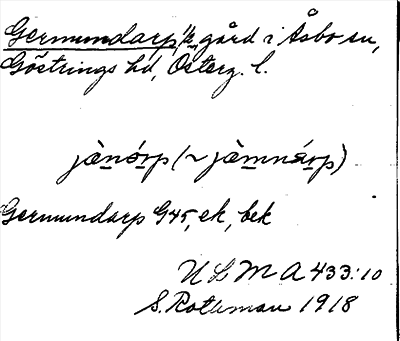 Germundarp, 1/2, gård i Åsbo sn,
Göstrings hd, Österg. l.
jànórp (~ jàmnárp)
Germundarp G45, ek, bek
ULMA 433:10
S. Rothman 1918